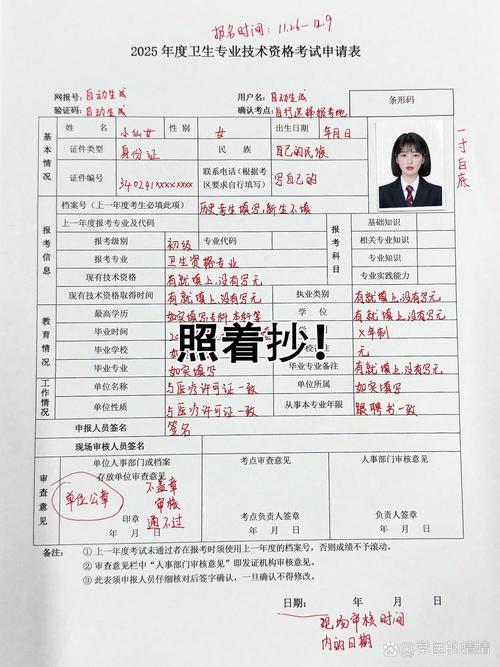 报名时间：11.26-12.9
2025年度卫生专业技术资格考试申请表
网报号：自动生成 用户名：自动生成 条形码
验证码：自动生成 确认考点：自行选择报考地
基本情况
姓名 小仙女 性别 女 出生日期 年月日
证件类型 身份证 民族 自己的民族
证件编号 340241xxxxxxxx 联系电话（根据考区要求自行填写） 写自己的
一寸白底
报考信息
档案号（上一年度考生必填此项） 历史考生填写，新生不填
上一年度报考专业及代码
报考级别 初级 专业代码
报考专业 卫生资格专业
现有技术资格 有就填上，没有写无
现有技术资格取得时间 有就填上，没有写无
报考科目
基础知识
相关专业知识
专业知识
专业实践能力
执业类别 有就填上，没有写无
教育情况
最高学历 如实填写专科，本科等 学位 有就填上，没有写无
毕业时间 X年制
毕业学校 无
毕业专业 如实填写 毕业专业备注 有就填上，没有写无
照着抄！
工作情况
单位名称 与医疗许可证一致 单位所属 如实填写
单位性质 与医疗许可证一致 从事本专业年限 跟聘书一致
申报人员签名 签名
现场审核人员签名
审查意见
单位人事部门或档案存放单位审查意见
单位公章
不盖章
审核
通不过
印章
年 月 日
考点审查意见
考点负责人签章
年 月 日
人事部门审查意见
考区负责人签章
年 月 日
备注：①上一年度考试未通过者在报考时须使用上一年度的档案号，否则成绩不予滚动。
②审查意见栏中“人事部门审核意见”即发证机构审核意见。
③此表须申报人员仔细核对后签字确认，一旦确认不得修改。
日期： 年 月 日
现场审核时间
内的日期
@学医的婧婧